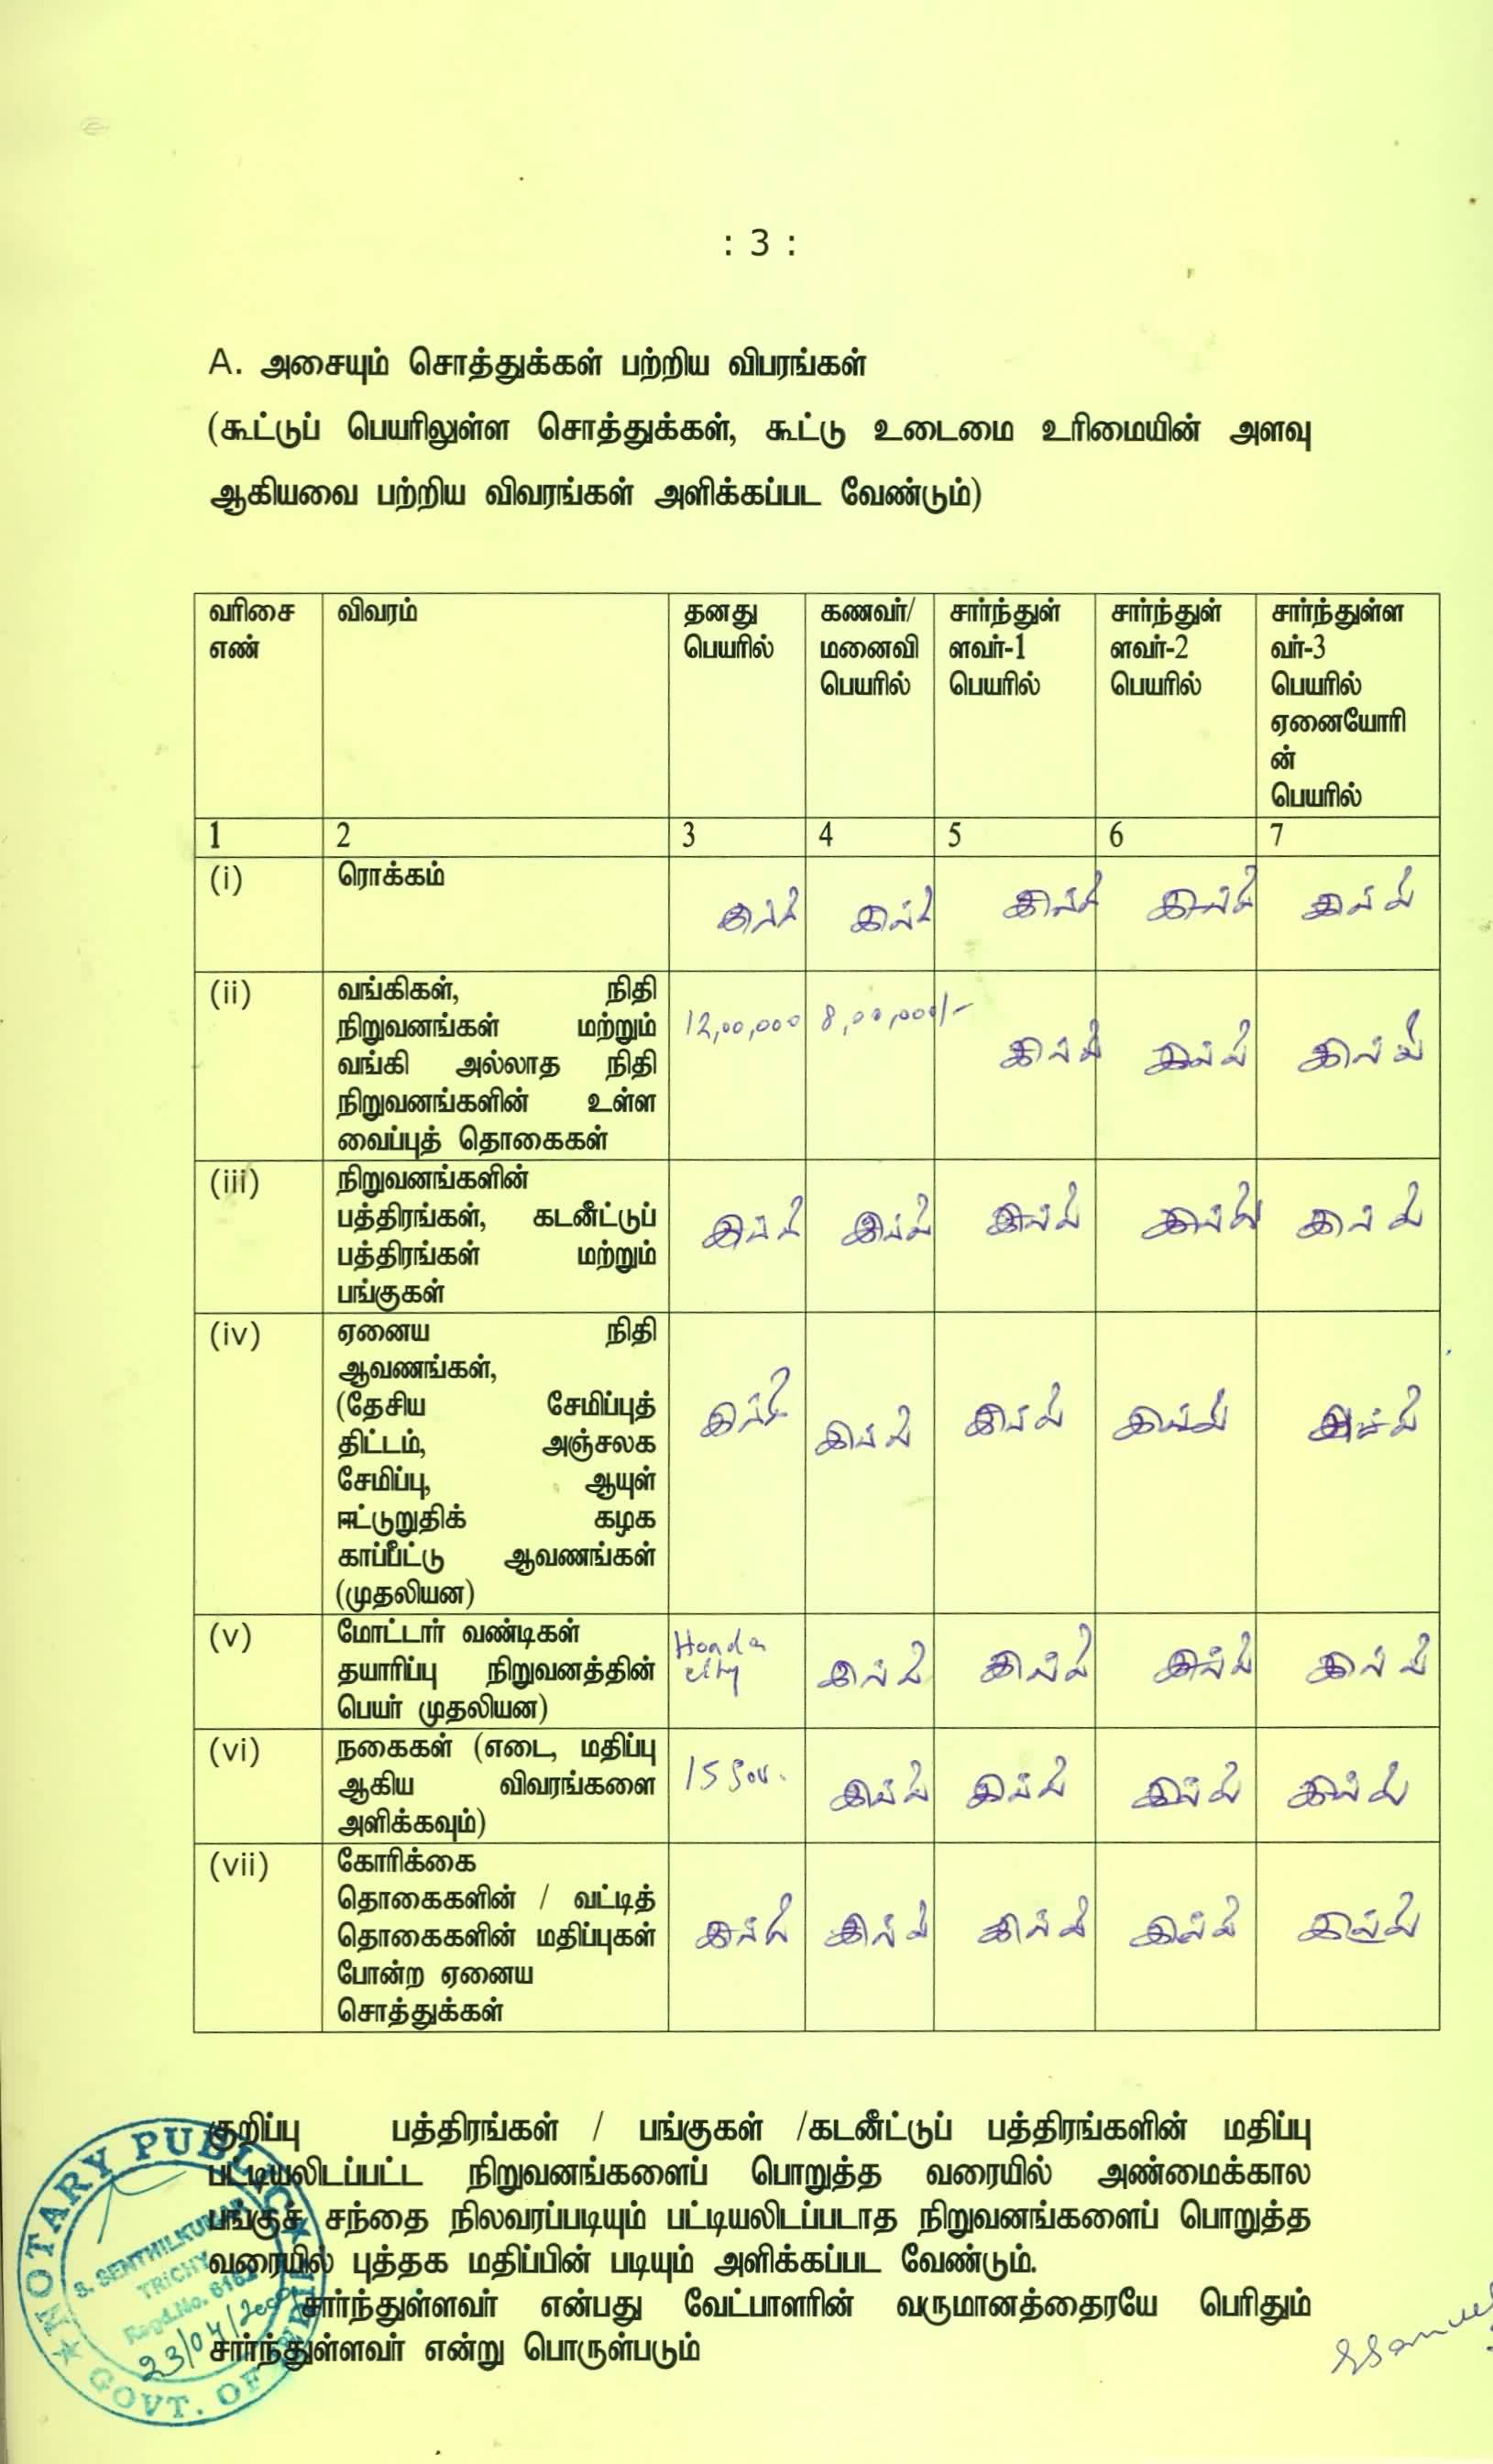 : 3 :
A. அசையும் சொத்துக்கள் பற்றிய விபரங்கள்
(கூட்டுப் பெயரிலுள்ள சொத்துக்கள், கூட்டு உடைமை உரிமையின் அளவு
ஆகியவை பற்றிய விவரங்கள் அளிக்கப்பட வேண்டும்)
வரிசை எண்
விவரம்
தனது பெயரில்
கணவர்/ மனைவி பெயரில்
சார்ந்துள் ளவர்-1 பெயரில்
சார்ந்துள் ளவர்-2 பெயரில்
சார்ந்துள்ள வர்-3 பெயரில் ஏனையோரி ன் பெயரில்
1 2 3 4 5 6 7
(i) ரொக்கம்
இல்லை இல்லை இல்லை இல்லை இல்லை
(ii) வங்கிகள், நிதி
நிறுவனங்கள் மற்றும்
வங்கி அல்லாத நிதி
நிறுவனங்களின் உள்ள
வைப்புத் தொகைகள்
12,00,000 8,00,000/- இல்லை இல்லை இல்லை
(iii) நிறுவனங்களின்
பத்திரங்கள், கடனீட்டுப்
பத்திரங்கள் மற்றும்
பங்குகள்
இல்லை இல்லை இல்லை இல்லை இல்லை
(iv) ஏனைய நிதி
ஆவணங்கள்,
(தேசிய சேமிப்புத்
திட்டம், அஞ்சலக
சேமிப்பு, ஆயுள்
ஈட்டுறுதிக் கழக
காப்பீட்டு ஆவணங்கள்
(முதலியன)
இல்லை இல்லை இல்லை இல்லை இல்லை
(v) மோட்டார் வண்டிகள்
தயாரிப்பு நிறுவனத்தின்
பெயர் முதலியன)
Honda city இல்லை இல்லை இல்லை இல்லை
(vi) நகைகள் (எடை, மதிப்பு
ஆகிய விவரங்களை
அளிக்கவும்)
15 Sov. இல்லை இல்லை இல்லை இல்லை
(vii) கோரிக்கை
தொகைகளின் / வட்டித்
தொகைகளின் மதிப்புகள்
போன்ற ஏனைய
சொத்துக்கள்
இல்லை இல்லை இல்லை இல்லை இல்லை
குறிப்பு பத்திரங்கள் / பங்குகள் /கடனீட்டுப் பத்திரங்களின் மதிப்பு
பட்டியலிடப்பட்ட நிறுவனங்களைப் பொறுத்த வரையில் அண்மைக்கால
பங்குச் சந்தை நிலவரப்படியும் பட்டியலிடப்படாத நிறுவனங்களைப் பொறுத்த
வரையில் புத்தக மதிப்பின் படியும் அளிக்கப்பட வேண்டும்.
சார்ந்துள்ளவர் என்பது வேட்பாளரின் வருமானத்தைரயே பெரிதும்
சார்ந்துள்ளவர் என்று பொருள்படும்
NOTARY PUBLIC
S. SENTHILKUMAR
TRICHY
Regd.No.
23/04/
GOVT. OF